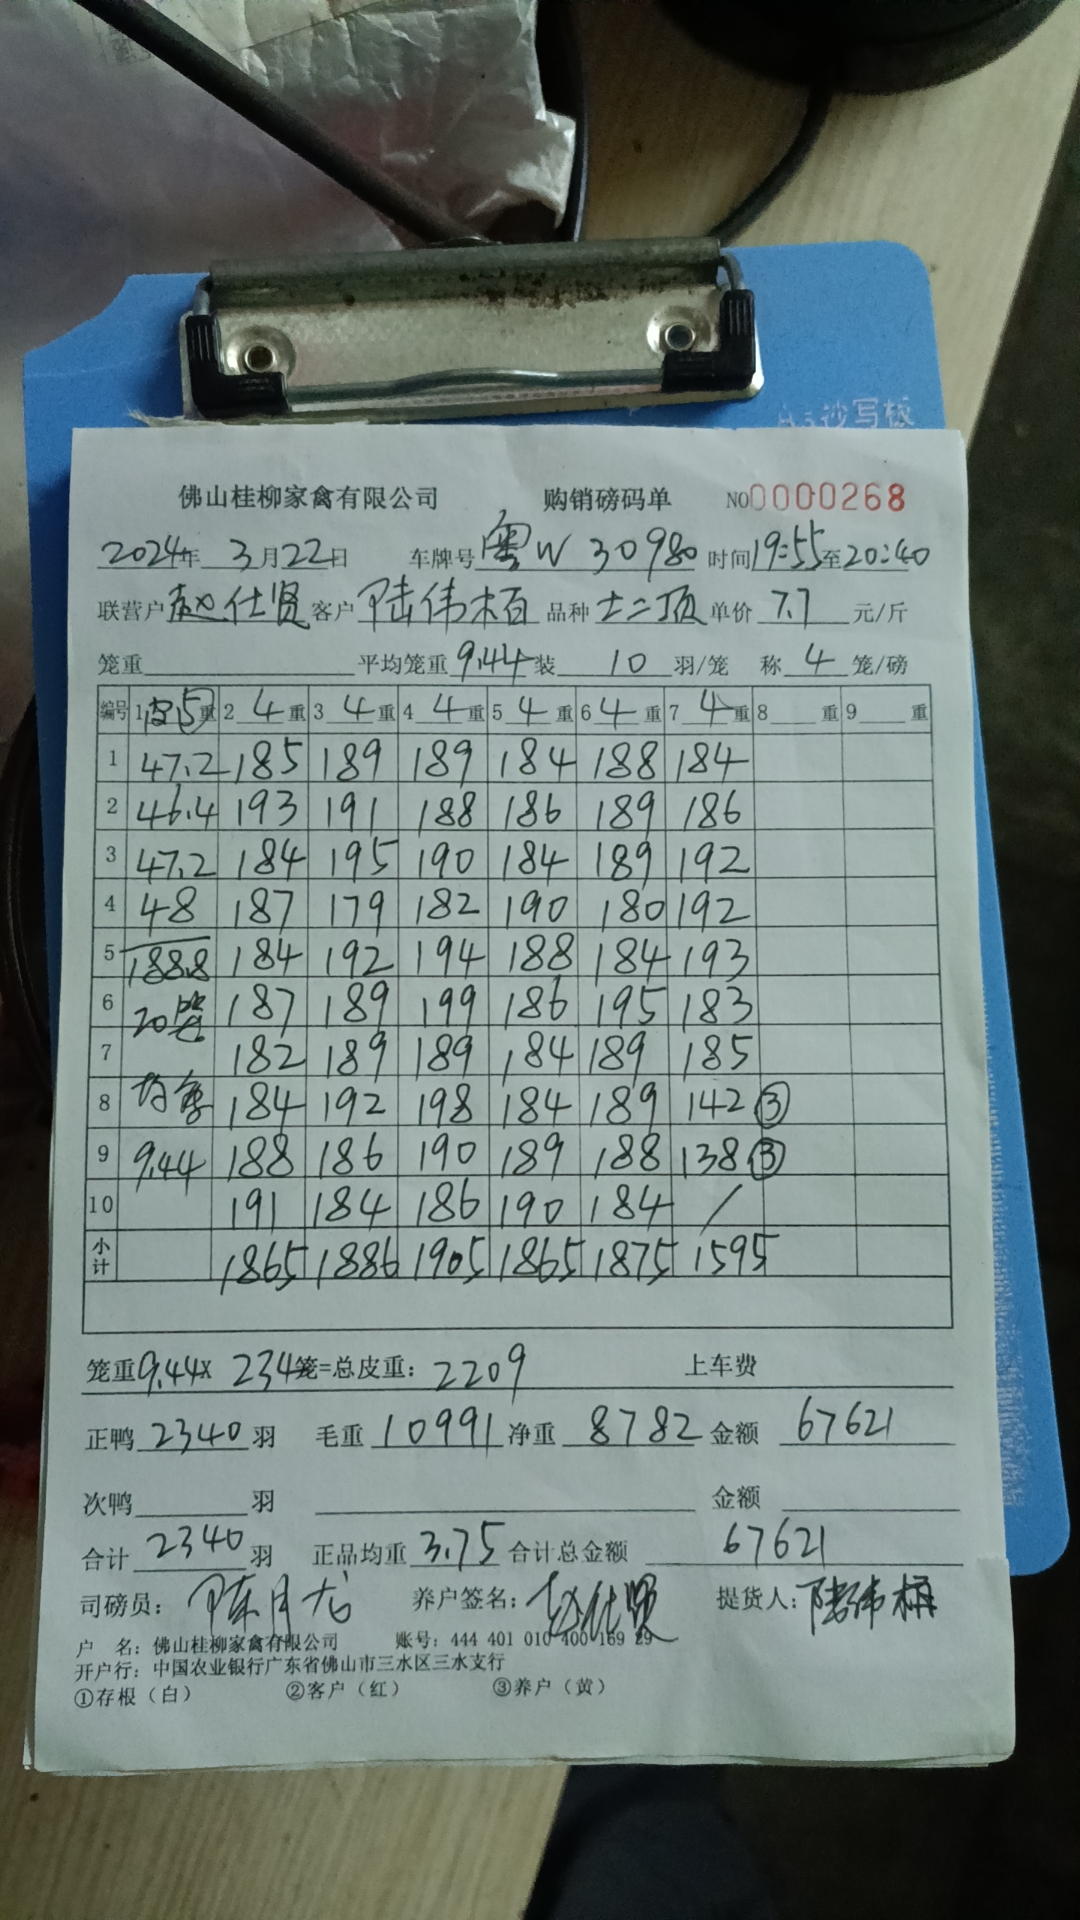 A5抄写板
佛山桂柳家禽有限公司 购销磅码单 NO0000268
2024年 3月22日 车牌号 粤W 30980 时间19:55至20:40
联营户 赵仕贤 客户 陆伟栢 品种 士二顶 单价 7.7 元/斤
笼重 平均笼重 9.44 装 10 羽/笼 称 4 笼/磅
编号 1皮5重 2 4 重 3 4 重 4 4 重 5 4 重 6 4 重 7 4 重 8 重 9 重
1 47.2 185 189 189 184 188 184
2 46.4 193 191 188 186 189 186
3 47.2 184 195 190 184 189 192
4 48 187 179 182 190 180 192
5 188.8 184 192 194 188 184 193
6 20笼 187 189 199 186 195 183
7 182 189 189 184 189 185
8 均重 184 192 198 184 189 142 ③
9 9.44 188 186 190 189 188 138 ③
10 191 184 186 190 184 /
小计 1865 1886 1905 1865 1875 1595
笼重9.44× 234笼=总皮重: 2209 上车费
正鸭 2340 羽 毛重 10991 净重 8782 金额 67621
次鸭 羽 金额
合计 2340 羽 正品均重 3.75 合计总金额 67621
司磅员: 陈月龙 养户签名: 赵仕贤 提货人: 陆伟栢
户 名: 佛山桂柳家禽有限公司 账号: 444 401 010 400 169 29
开户行: 中国农业银行广东省佛山市三水区三水支行
①存根（白） ②客户（红） ③养户（黄）